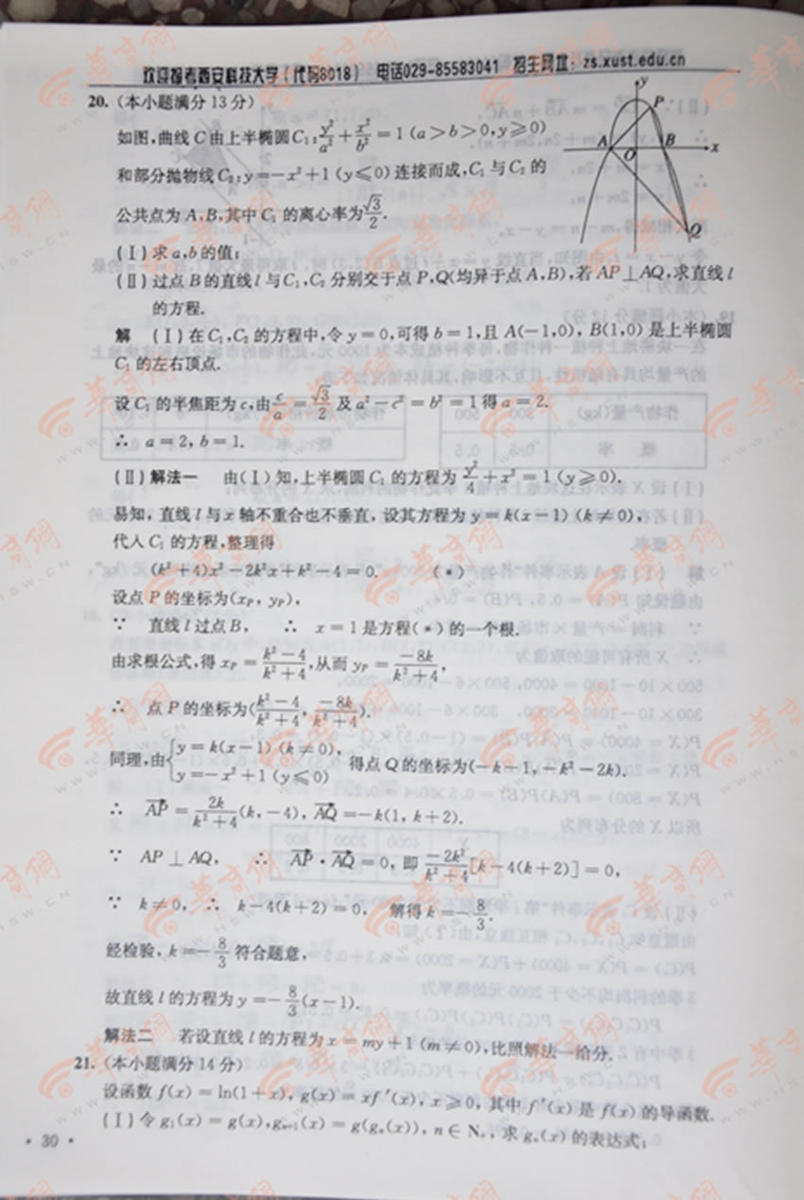 欢迎报考西安科技大学(代码8018) 电话029-85583041 招生网址:zs.xust.edu.cn
20. (本小题满分13分)
如图,曲线C由上半椭圆C₁:y²/a²+x²/b²=1(a>b>0,y≥0)
和部分抛物线C₂:y=-x²+1(y≤0)连接而成,C₁与C₂的
公共点为A,B,其中C₁的离心率为√3/2.
y
P
A
O
B
x
Q
(Ⅰ)求a,b的值;
(Ⅱ)过点B的直线l与C₁,C₂分别交于点P,Q(均异于点A,B),若AP⊥AQ,求直线l
的方程.
解 (Ⅰ)在C₁,C₂的方程中,令y=0,可得b=1,且A(-1,0),B(1,0)是上半椭圆
C₁的左右顶点.
设C₁的半焦距为c,由c/a=√3/2及a²-c²=b²=1得a=2.
∴ a=2,b=1.
(Ⅱ)解法一 由(Ⅰ)知,上半椭圆C₁的方程为y²/4+x²=1(y≥0).
易知,直线l与x轴不重合也不垂直,设其方程为y=k(x-1)(k≠0),
代入C₁的方程,整理得
(k²+4)x²-2k²x+k²-4=0. (*)
设点P的坐标为(xP,yP),
∵ 直线l过点B, ∴ x=1是方程(*)的一个根.
由求根公式,得xP=(k²-4)/(k²+4),从而yP=-8k/(k²+4),
∴ 点P的坐标为((k²-4)/(k²+4),-8k/(k²+4)).
同理,由{y=k(x-1)(k≠0),
y=-x²+1(y≤0)
得点Q的坐标为(-k-1,-k²-2k).
∴ AP=2k/(k²+4)(k,-4),AQ=-k(1,k+2).
∵ AP⊥AQ, ∴ AP·AQ=0,即-2k²/(k²+4)[k-4(k+2)]=0,
∵ k≠0, ∴ k-4(k+2)=0, 解得k=-8/3.
经检验,k=-8/3符合题意,
故直线l的方程为y=-8/3(x-1).
解法二 若设直线l的方程为x=my+1(m≠0),比照解法一给分.
21. (本小题满分14分)
设函数f(x)=ln(1+x),g(x)=xf′(x),x≥0,其中f′(x)是f(x)的导函数.
(Ⅰ)令g₁(x)=g(x),gₙ₊₁(x)=g(gₙ(x)),n∈N₊,求gₙ(x)的表达式;
·30·
华商网
HSW.CN